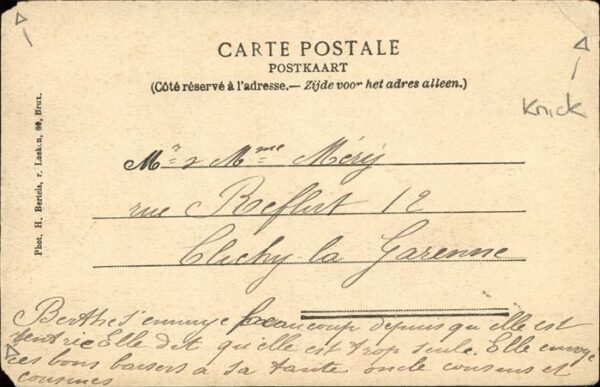 CARTE POSTALE
POSTKAART
(Côté réservé à l'adresse.— Zijde voor het adres alleen.)
Knick
Phot. H. Bertels, r. Laeken, 86, Brux.
Mr & Mme Méry
rue Reflut 12
Clichy-la Garenne
Berthe s'ennuye beaucoup depuis qu'elle est
rentrée Elle dit qu'elle est trop seule. Elle envoye
ces bons baisers a sa tante oncle cousins et
cousines